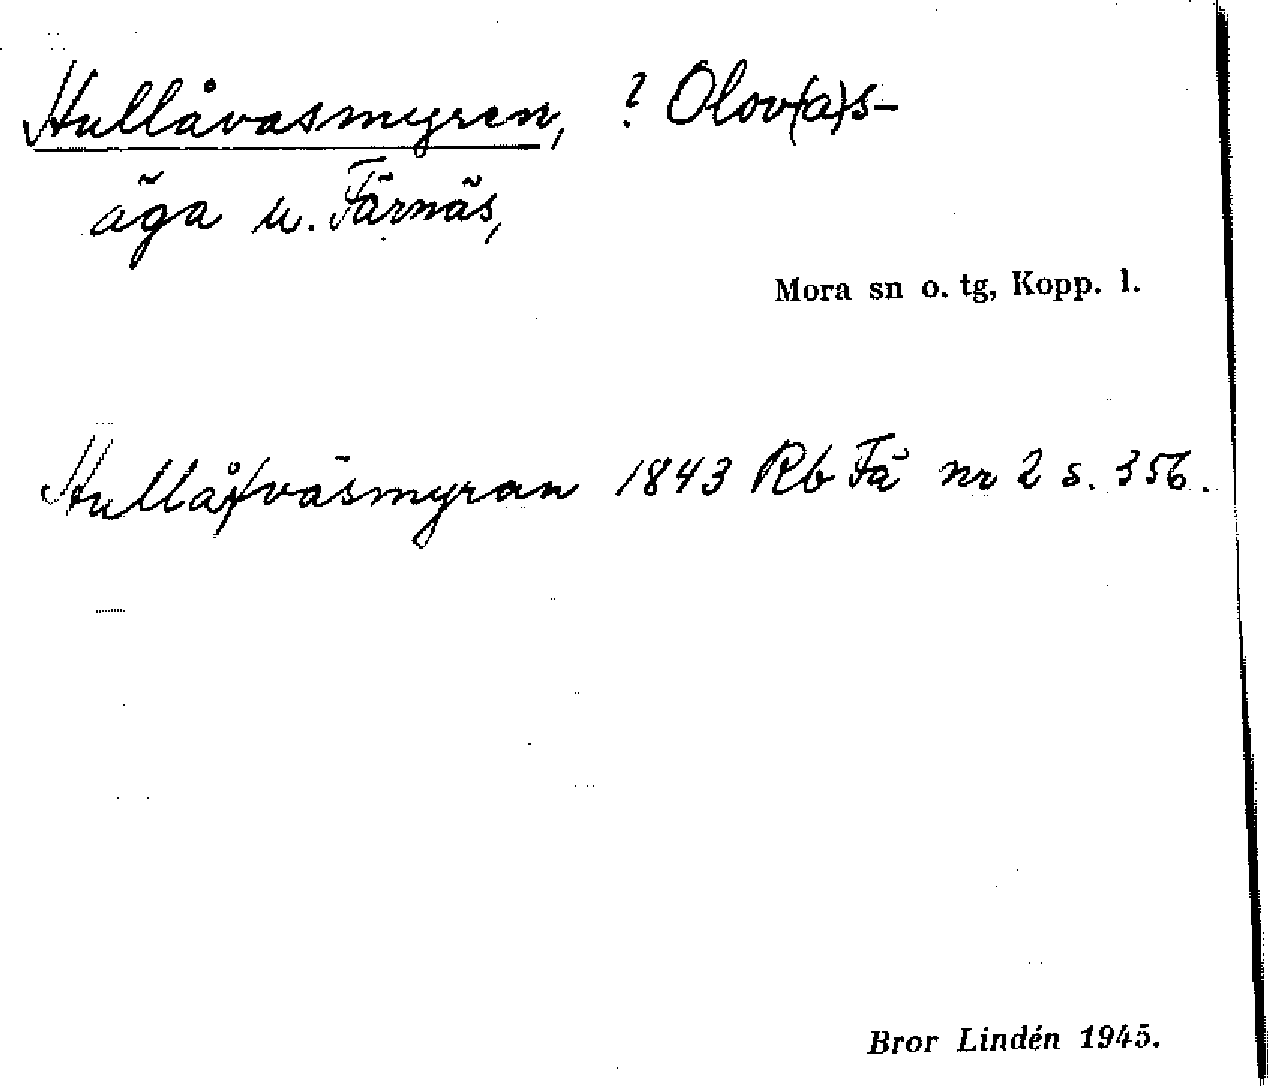 Hullåvasmyren, ? Olov(a)s-
äga u. Färnäs,
Mora sn o. tg, Kopp. l.
Hullåfväsmyran 1843 Rb Fä nr 2 s. 356.
Bror Lindén 1945.